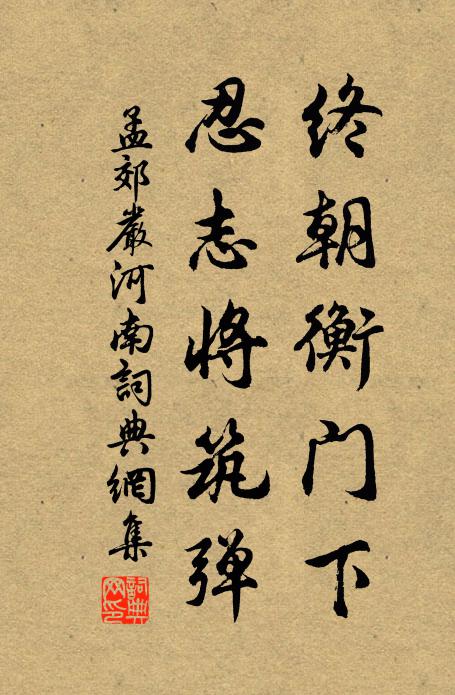 终朝衡门下
忍志将筑弹
孟郊嚴河南詞典網集
詞典網印